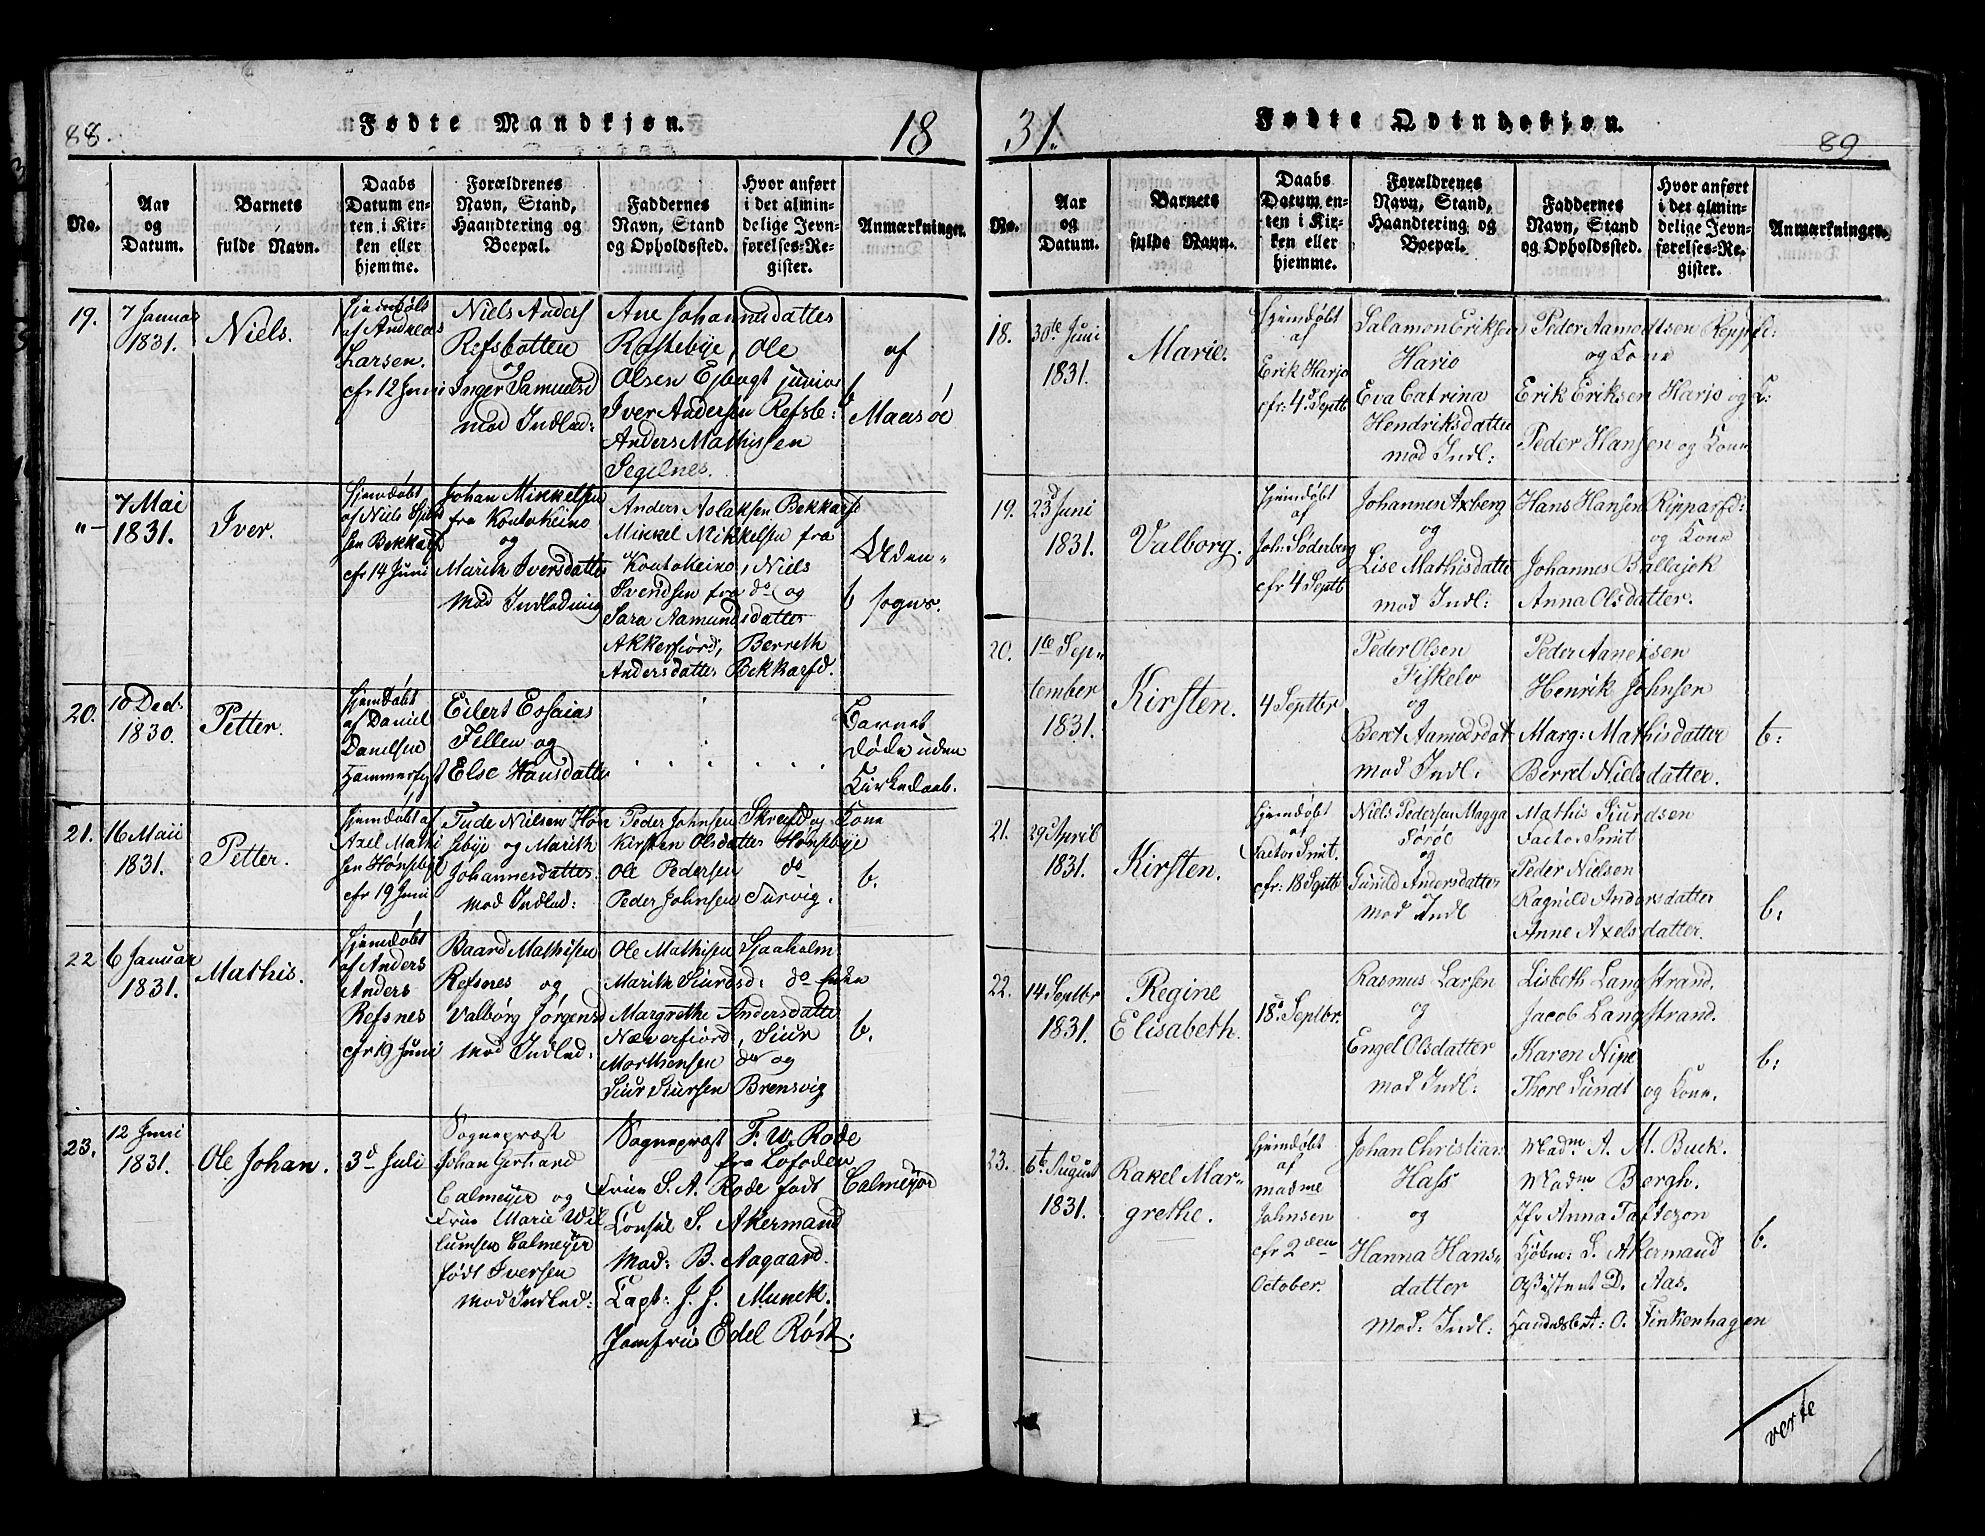 88.
Fødte Mandkjøn.
18
No.
Aar
og
Datum.
Barnets
fulde Navn.
Daabs
Datum en-
ten i Kir-
ken eller
hjemme.
Forældrenes
Navn, Stand,
Haandtering og
Boepæl.
Faddernes
Navn, Stand
og Opholdssted.
Hvor anført
i det almin-
delige Jevn-
førelses-Re-
gister.
Anmærkninger.
19.
7 Januar
1831.
Niels.
Hjemdøbt
af Andreas
Larsen.
cfr 12 Juni
Niels Anders
Refsbotten
og
Inger Samuelsd
mod Indlad:
Ane Johannsdatter
Rastebye, Ole
Olsen Ejbugt junior
Iver Andersen Refsb:
Anders Mathissen
Segilnes.
b
af
Maasøe
"-
7 Mai
1831.
Iver.
Hjemdøbt
af Niels
sen Bekkarf
cfr 14 Juni
Johan Mikkelsen
fra Koutokeino
og
Marith Iversdatter
Mod Indledning
Anders Aslaksen Bekkarfd
Mikkel Mikkelsen fra
Koutokeino, Niels
Svendsen fra do og
Sara Aamundsdatter
Akkerfiord, Berreth
Andersdatter Bekkarfd.
b
Uden-
sogns.
20.
10 Dec:
1830.
Petter.
Hjemdøbt
af Daniel
Danielsen
Hammerfest
Eilert Essaias
Fellen og
Else Hansdatter
Barnet
døde uden
Kirkedaab.
21.
16 Maii
1831.
Petter.
Hjemdøbt af
Axel Mathi
sen Hønsebye
cfr 19 Juni
Tude Nielsen Høn
sebye og Marith
Johannesdatter
Mod Indlad:
Peder Johnsen Skreifd og Kone
Kirsten Olsdatter Hønsebye
Ole Pedersen do
Peder Johnsen Survig.
b.
22
6 Januar
1831.
Mathis.
Hjemdøbt
af Anders
Anders
Refsnes
cfr 19 Juni
Baard Mathisen
Refsnes og
Valborg Jørgensd
Mod Indlad:
Ole Mathisen Sjaaholm
Marith Siursd: do Enke
Margrethe Andersdatter
Næverfiord, Siur
Morthensen do og
Siur Siursen Brensvig
b.
23.
12 Juni
1831.
Ole Johan.
3d Juli
Sognepræst
Johan Gertrand
Calmeyer og
Frue Marie Wil
lumsen Calmeyer
født Iversen
Mod Indlad:
Sognepræst F. W. Rode
fra Lofoden
Frue S. A. Rode født Calmeyer
Consul S. Akermand
Mad: B. Aagaard.
Capt: J. J. Munck.
Jomfrue Edel Røst.
31.
Fødte Qvindekjøn.
89
No.
Aar
og
Datum.
Barnets
fulde Navn.
Daabs
Datum en-
ten i Kir-
ken eller
hjemme.
Forældrenes
Navn, Stand,
Haandtering og
Boepæl.
Faddernes
Navn, Stand
og Opholdssted.
Hvor anført
i det almin-
delige Jevn-
førelses-Re-
gister.
Anmærkninger.
18.
30te Juni
1831.
Marie.
Hjemdøbt
af
Erik Harjo
cfr: 4d Septb
Salamon Eriksen
Harjo
Eva Catrina
Hendriksdatter
mod Indl:
Peder Aamodtsen
og Kone
Erik Eriksen Harjo og K:
Peder Hansen og Kone
19.
23d Juni
1831.
Valborg.
Hjemdøbt
af
Joh: Søderberg
cfr 4 Septb
Johannes Axberg
og
Lise Mathisdatter
mod Indl:
Hans Hansen Ripparfd:
og Kone
Johannes Ballajok
Anna Olsdatter.
20.
1te Sep-
tember
1831.
Kirsten.
4 Septber
Peder Olsen
Fiskelv
og
Beret Aamodsdat
mod Indl:
Peder Aanetsen
Henrik Johnsen
Marg: Mathisdatter
Berret Nielsdatter.
b:
21.
29d April
1831.
Kirsten.
Hjemdøbt
af
Factor Smit.
cfr: 18 Septb
Niels Pedersen Magga
Sørøe
og
Gunild Andersdatter
mod Indl
Mathis Siurdsen
Factor Smit
Peder Nielsen
Ragnild Andersdatter
Anne Axelsdatter.
b:
22.
14 Septber
1831.
Regine
Elisabeth.
18de Septbr.
Rasmus Larsen
og
Engel Olsdatter
mod Indl:
Lisbeth Langstrand.
Jacob Langstrand.
Karen Nipe
Thore Sundt og Kone.
b:
23.
6te August
1831.
Rakel Mar-
grethe.
Hjemdøbt
af
madme
Johnsen
cfr 2den
October.
Johan Christian
Hass
og
Hanna Hans-
datter
Mod: Indl:
Madm A. M. Buck.
Madm Bergh.
Jfr Anna Taftezon
Kjøbm: S. Akermand
Assistent D. Aas.
Handelsbet: O. Finkenhagen
b.
verte